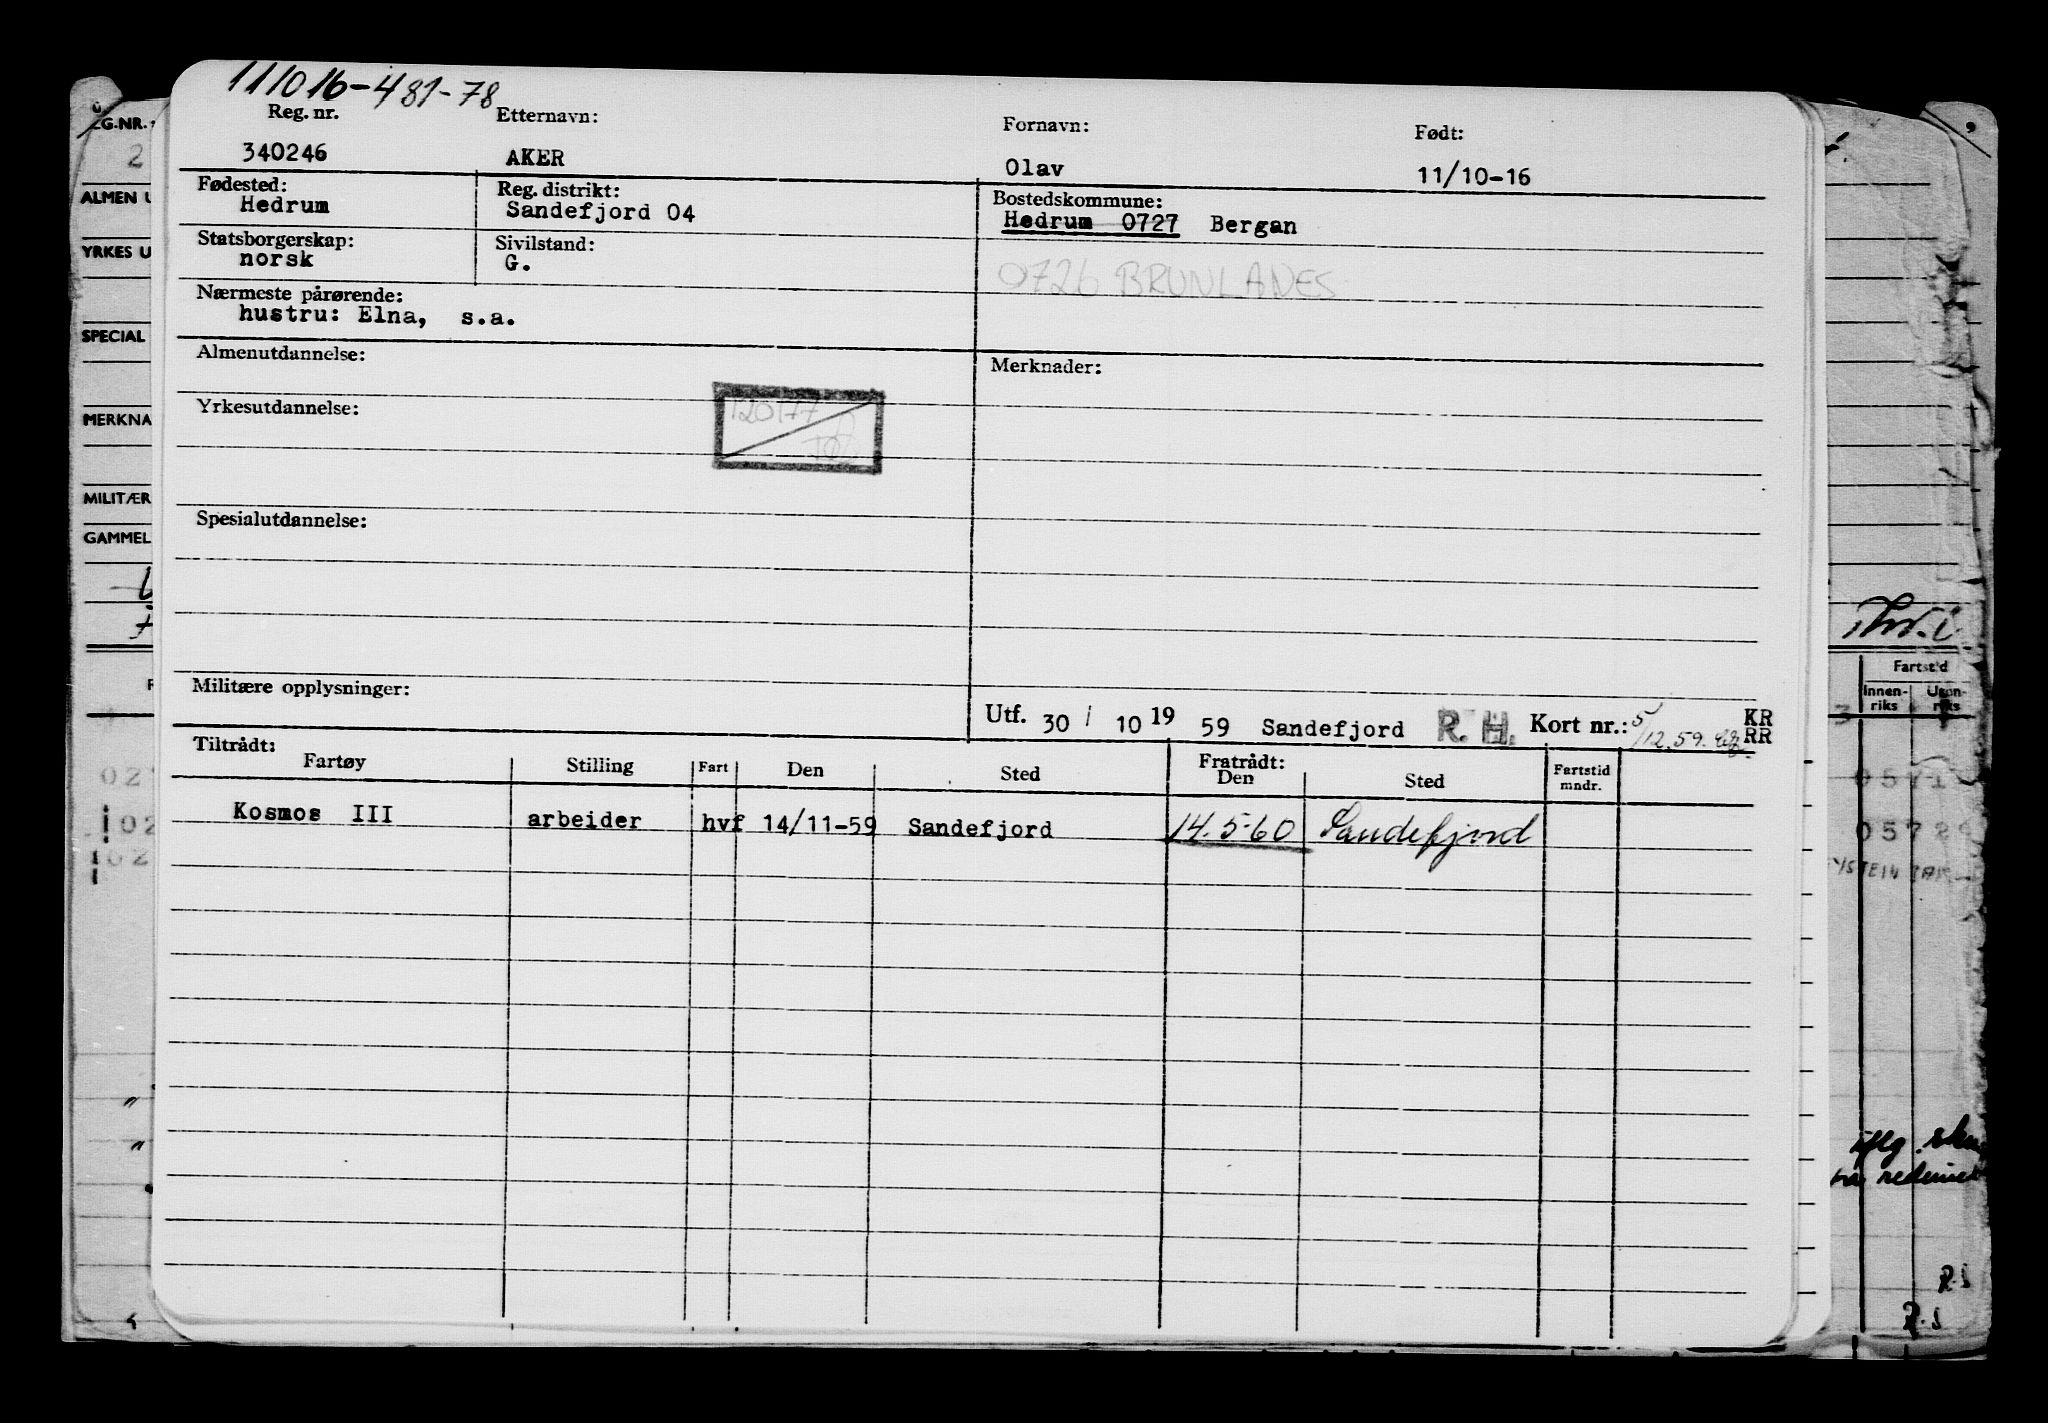 111016-481-78
Reg. nr. Etternavn: Fornavn: Født:
340246 AKER Olav 11/10-16
Fødested: Reg. distrikt: Bostedskommune:
Hedrum Sandefjord 04 Hedrum 0727 Bergan
Statsborgerskap: Sivilstand:
norsk G.
0726 BRUNLANES
Nærmeste pårørende:
hustru: Elna, s.a.
Almenutdannelse: Merknader:
Yrkesutdannelse:
120177
Spesialutdannelse:
Militære opplysninger:
Utf. 30/ 10 19 59 Sandefjord R. H. Kort nr.: 5/12.59. KR RR
Tiltrådt: Fratrådt:
Fartøy Stilling Fart Den Sted Den Sted Fartstid mndr.
Kosmos III arbeider hvf 14/11-59 Sandefjord 14.5-60 Sandefjord
ALMEN U
YRKES U
SPECIAL
MERKNA
MILITÆR
GAMMEL
Fartstid
Innen-
riks
R.S
R.S